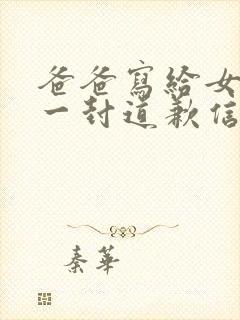 爸爸寫給女
一封道歉信
秦華